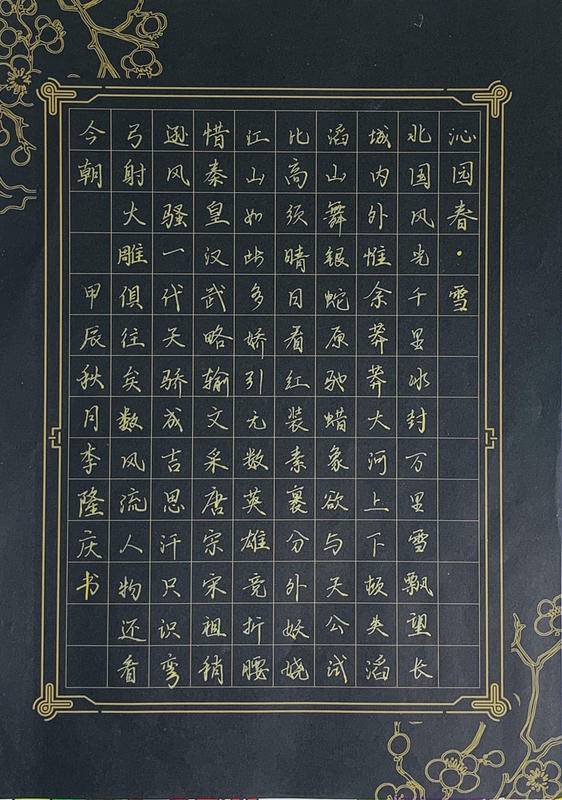 沁园春·雪
北国风光千里冰封万里雪飘望长
城内外惟余莽莽大河上下顿失滔
滔山舞银蛇原驰蜡象欲与天公试
比高须晴日看红装素裹分外妖娆
江山如此多娇引无数英雄竞折腰
惜秦皇汉武略输文采唐宗宋祖稍
逊风骚一代天骄成吉思汗只识弯
弓射大雕俱往矣数风流人物还看
今朝 甲辰秋月李隆庆书